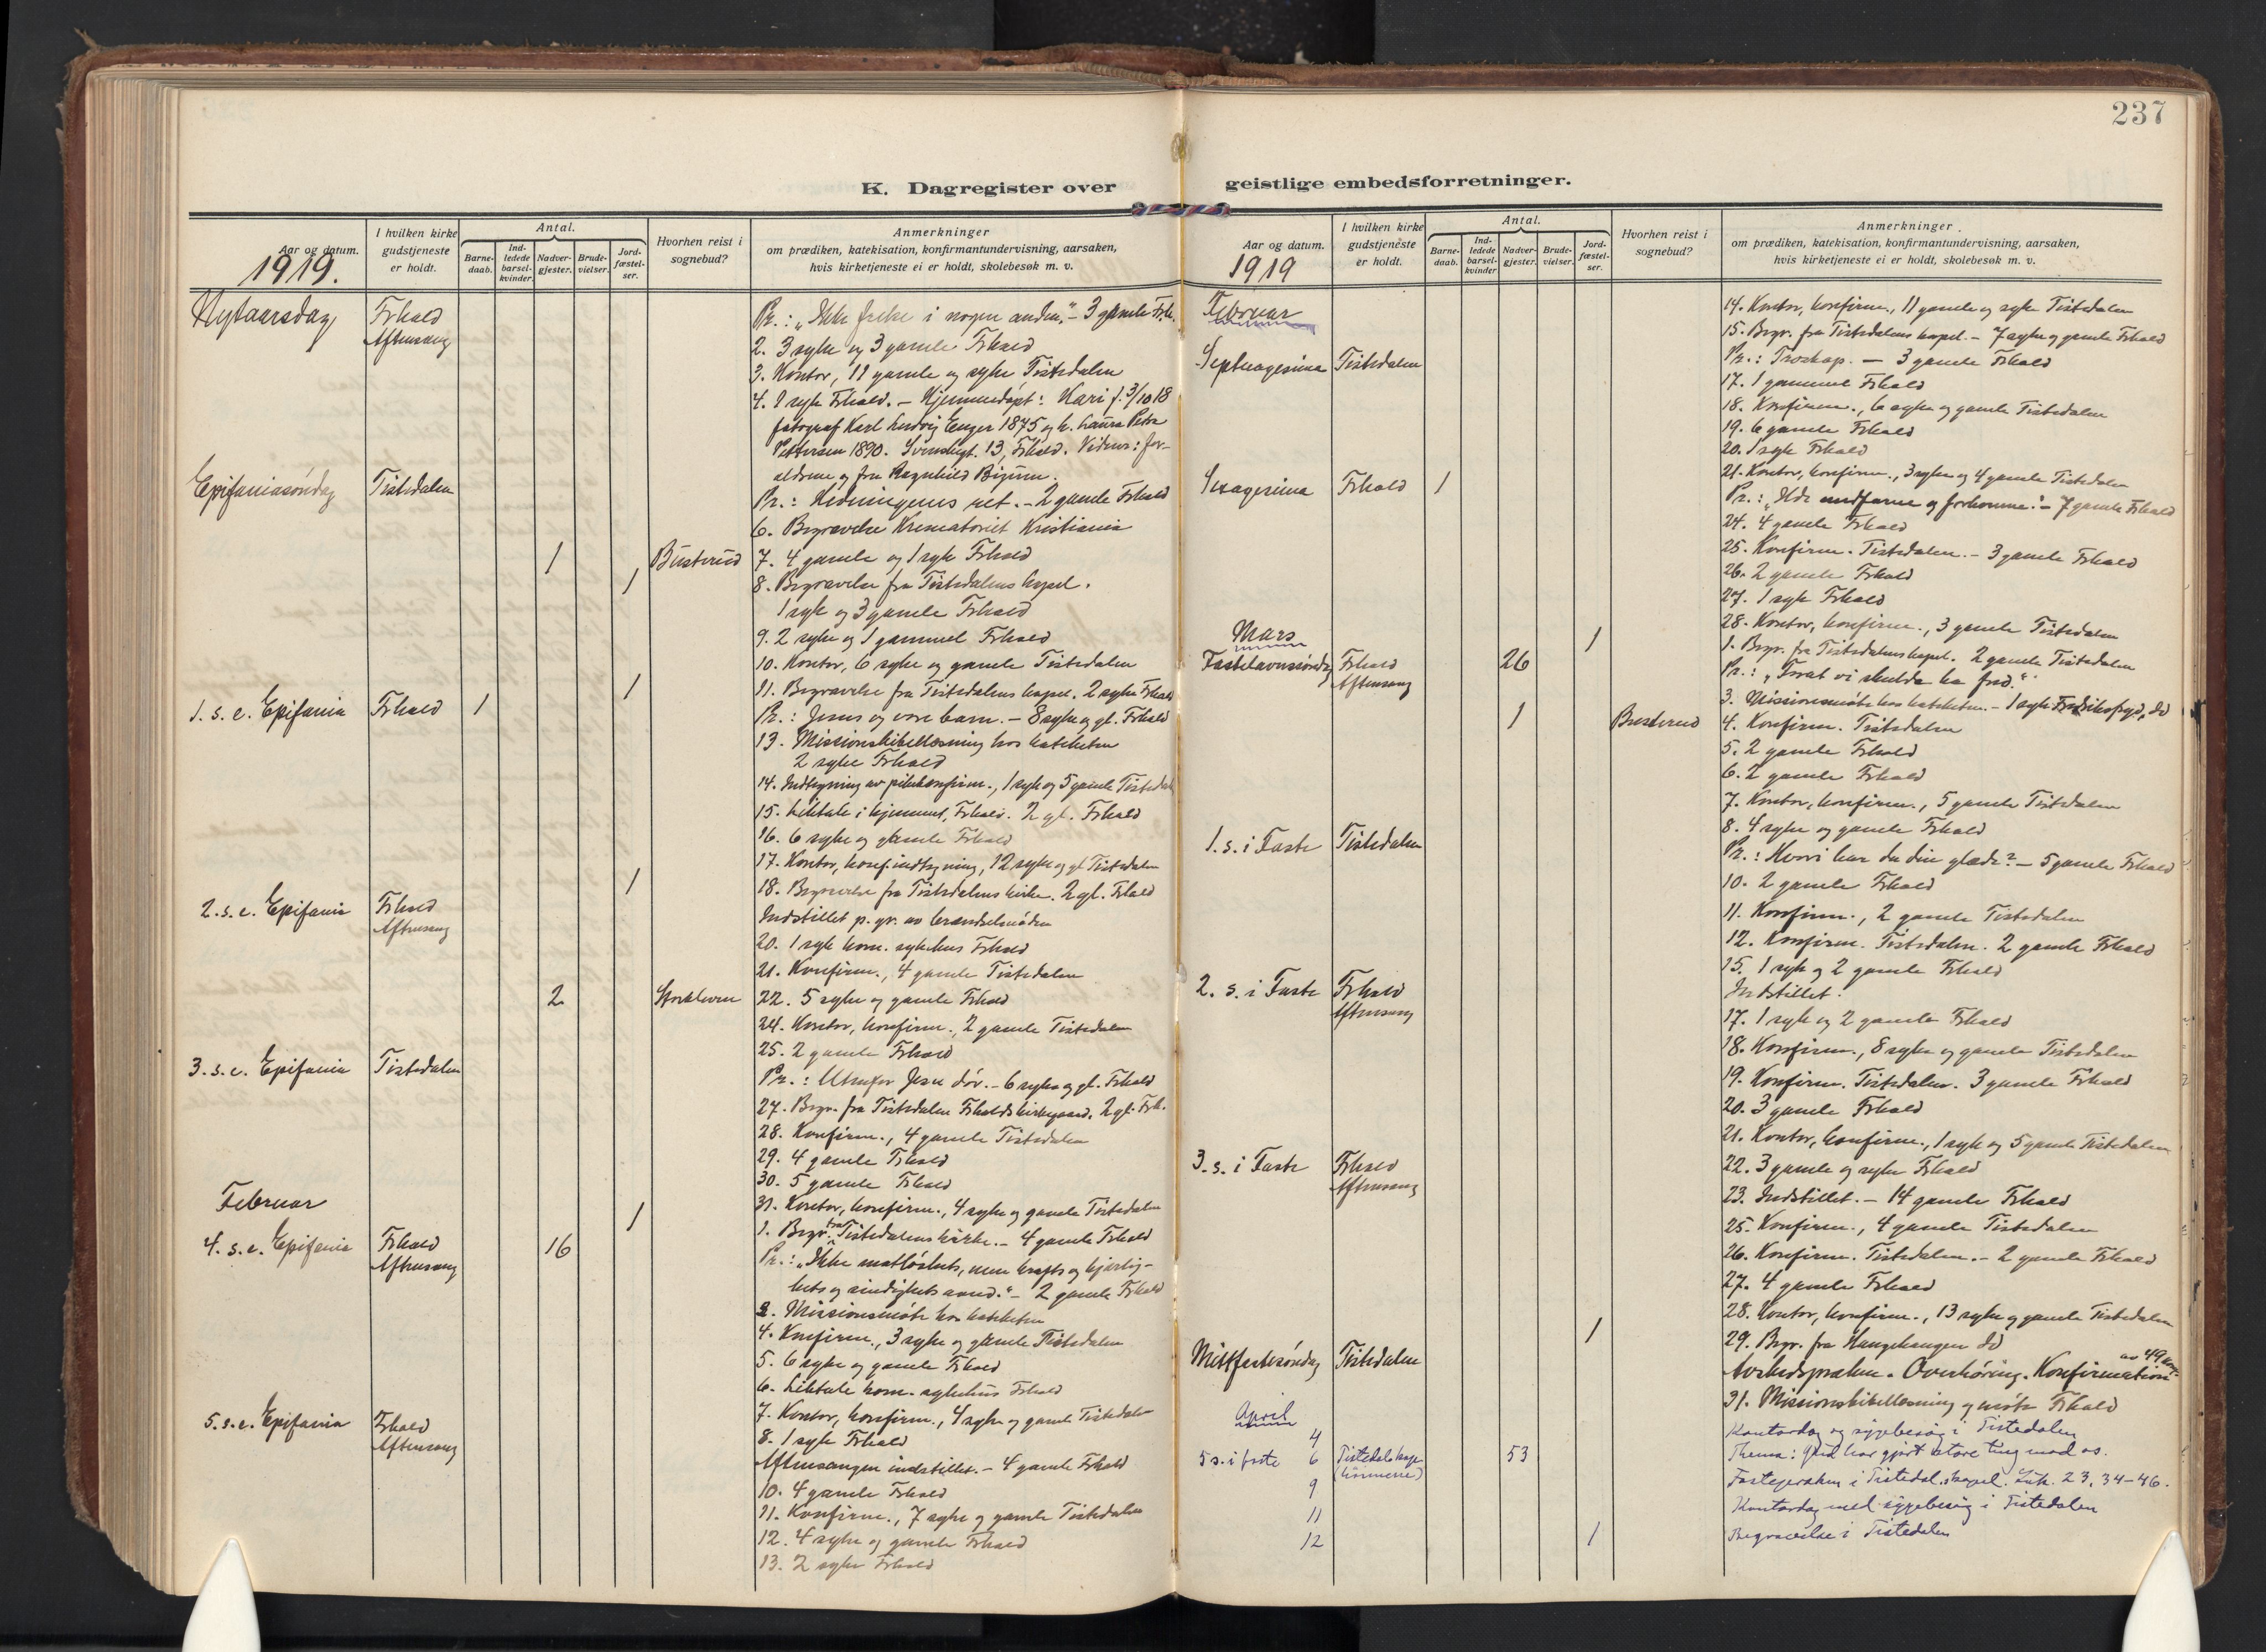 237
K. Dagregister over
geistlige embedsforretninger.
Aar og datum.
I hvilken kirke gudstjeneste er holdt.
Antal.
Barne-daab.
Ind-ledede barsel-kvinder.
Nadver-gjester.
Brude-vielser.
Jord-fæstel-ser.
Hvorhen reist i sognebud?
Anmerkninger
om prædiken, katekisation, konfirmantundervisning, aarsaken,
hvis kirketjeneste ei er holdt, skolebesøk m. v.
1919.
Nytaarsdag Frhald Pr.: „Ikke frelse i nogen anden." – 3 gamle Frh.
Aftensang
2. 3 syke og 3 gamle Frhald
3. Kontor, 11 gamle og syke Tistedalen
4. 1 syk Frhald. – Hjemmedøpt: Kari f. 3/10 18
fotograf Karl Ludvig Enger 1875 og h. Laura Petra
Pettersen 1890. Svendsgt. 13, Frhald. Vidner: for-
ældrene og fru Ragnhild
Epifaniasøndag Tistedalen Pr.: Hedningenes ret. – 2 gamle Frhald
6. Begravelse Krematoriet Kristiania
1 Busterud 7. 4 gamle og 1 syk Frhald
1 8. Begravelse fra Tistedalens kapel.
1 syk og 3 gamle Frhald
9. 2 syke og 1 gammel Frhald
10. Kontor, 6 syke og gamle Tistedalen
1 11. Begravelse fra Tistedalens kapel. 2 syke Frhald
1. s. e. Epifania Frhald 1 Pr.: Jesus og vore barn. – 8 syke og gl. Frhald
13. Missionsbibellæsning hos kateketen
2 syke Frhald
14. Indtegning av pikekonfirm., 1 syk og 5 gamle Tistedalen
15. Liktale i hjemmet, Frhald. 2 gl. Frhald
16. 6 syke og gamle Frhald
17. Kontor, konf. indtegning, 12 syke og gl. Tistedalen
1 18. Begravelse fra Tistedalens kirke. 2 gl. Frhald
2. s. e. Epifania Frhald Indstillet p. gr. av brændselsnøden
Aftensang
20. 1 syk kom. sykehus Frhald
21. Konfirm., 4 gamle Tistedalen
2 22. 5 syke og gamle Frhald
24. Kontor, konfirm., 2 gamle Tistedalen
25. 2 gamle Frhald
3. s. e. Epifania Tistedalen Pr.: Utenfor Jesu dør. – 6 syke og gl. Frhald
27. Begr. fra Tistedalen Frhalds kirkegaard. 2 gl. Frh.
28. Konfirm., 4 gamle Tistedalen
29. 4 gamle Frhald
30. 5 gamle Frhald
Februar
31. Kontor, konfirm., 4 syke og gamle Tistedalen
1 1. Begr. fra Tistedalens kirke. – 4 gamle Frhald
4. s. e. Epifania Frhald 16 Pr.: „Ikke motløshets, men krafts og kjærlig-
Aftensang
hets og sindighets aand." – 2 gamle Frhald
2. Missionsmøte hos kateketen
4. Konfirm., 3 syke og gamle Tistedalen
5. 6 syke og gamle Frhald
6. Liktale kom. sykehus Frhald
7. Kontor, konfirm., 4 syke og gamle Tistedalen
8. 1 syk Frhald
5. s. e. Epifania Frhald Aftensangen indstillet. – 4 gamle Frhald
Aftensang
10. 4 gamle Frhald
11. Konfirm., 7 syke og gamle Tistedalen
12. 4 syke og gamle Frhald
13. 2 syke Frhald
Aar og datum.
I hvilken kirke gudstjeneste er holdt.
Antal.
Barne-daab.
Ind-ledede barsel-kvinder
Nadver-gjester.
Brude-vielser.
Jord-fæstel-ser.
Hvorhen reist i sognebud?
Anmerkninger.
om prædiken, katekisation, konfirmantundervisning, aarsaken,
hvis kirketjeneste ei er holdt, skolebesøk m. v.
1919
Februar
14. Kontor, konfirm., 11 gamle og syke Tistedalen
15. Begr. fra Tistedalens kapel. – 7 syke og gamle Frhald
Septuagesima Tistedalen Pr.: Troskap. – 3 gamle Frhald
17. 1 gammel Frhald
18. Konfirm., 6 syke og gamle Tistedalen
19. 6 gamle Frhald
20. 1 syk Frhald
21. Kontor, konfirm., 3 syke og 4 gamle Tistedalen
Sexagesima Frhald 1 Pr.: „ og forkomne." – 7 gamle Frhald
24. 4 gamle Frhald
25. Konfirm. Tistedalen. – 3 gamle Frhald
26. 2 gamle Frhald
27. 1 syk Frhald
28. Kontor, konfirm., 3 gamle Tistedalen
Mars
1 1. Begr. fra Tistedalens kapel. 2 gamle Tistedalen
Fastelavnssøndag Frhald 26 Pr.: „Forat vi skulde ha fred."
Aftensang
3. Missionsmøte hos kateketen. – 1 syk
1 Busterud 4. Konfirm. Tistedalen
5. 2 gamle Frhald
6. 2 gamle Frhald
7. Kontor, konfirm., 5 gamle Tistedalen
8. 4 syke og gamle Frhald
1. s. i Faste Tistedalen Pr.: Hvori har du din glæde? – 5 gamle Frhald
10. 2 gamle Frhald
11. Konfirm., 2 gamle Tistedalen
12. Konfirm. Tistedalen. 2 gamle Frhald
15. 1 syk og 2 gamle Frhald
2. s. i Faste Frhald Indstillet.
Aftensang
17. 1 syk og 2 gamle Frhald
18. Konfirm., 8 syke og gamle Tistedalen
19. Konfirm. Tistedalen. 3 gamle Frhald
20. 3 gamle Frhald
21. Kontor, konfirm., 1 syk og 5 gamle Tistedalen
22. 3 gamle og syke Frhald
3. s. i Faste Frhald 23. Indstillet. – 14 gamle Frhald
Aftensang
25. Konfirm., 4 gamle Tistedalen
26. Konfirm. Tistedalen. – 2 gamle Frhald
27. 4 gamle Frhald
28. Kontor, konfirm., 13 syke og gamle Tistedalen
1 29. Begr. fra Haugehaugen
Mittfastesøndag Tistedalen Overhøring. Konfirmation av 49
31. Missionsbibellæsning og møte Frhald
April
4 Kontordag og sygebesøg i Tistedalen
5 s. i faste 6 53 Thema: Gud har gjort store ting mod os.
9 Fastepræken i Tistedal. kapel. Luk. 23, 34–46.
11 Kontordag med sygebesøg i Tistedalen
12 1 Begravelse i Tistedalen